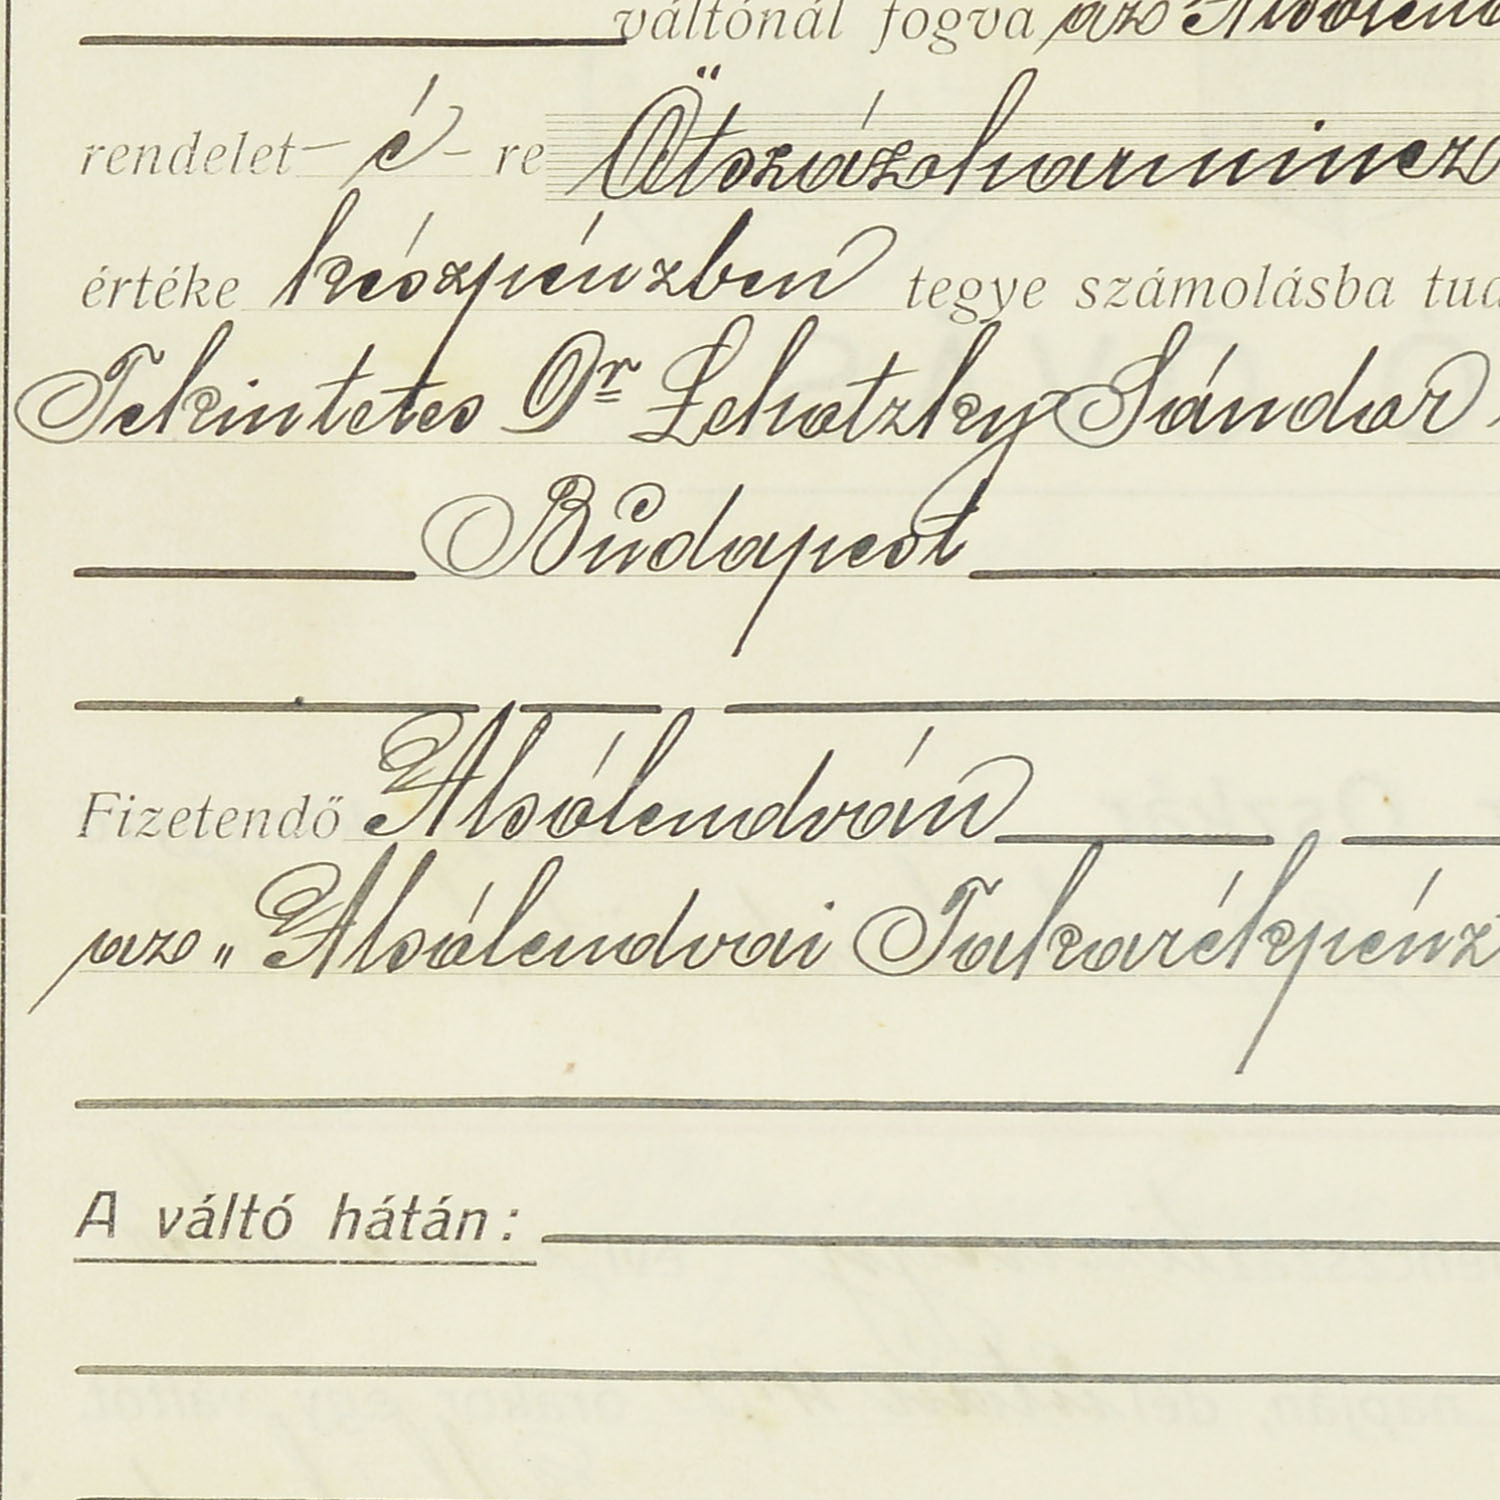 váltónál fogva az Alsólend
rendelet - é - re Ötszázharmincz
értéke készpénzben tegye számolásba tud
Tekintetes Dr Lehotzky Sándor
Budapest
Fizetendő Alsólendván
az „Alsólendvai Takarékpénz
A váltó hátán: